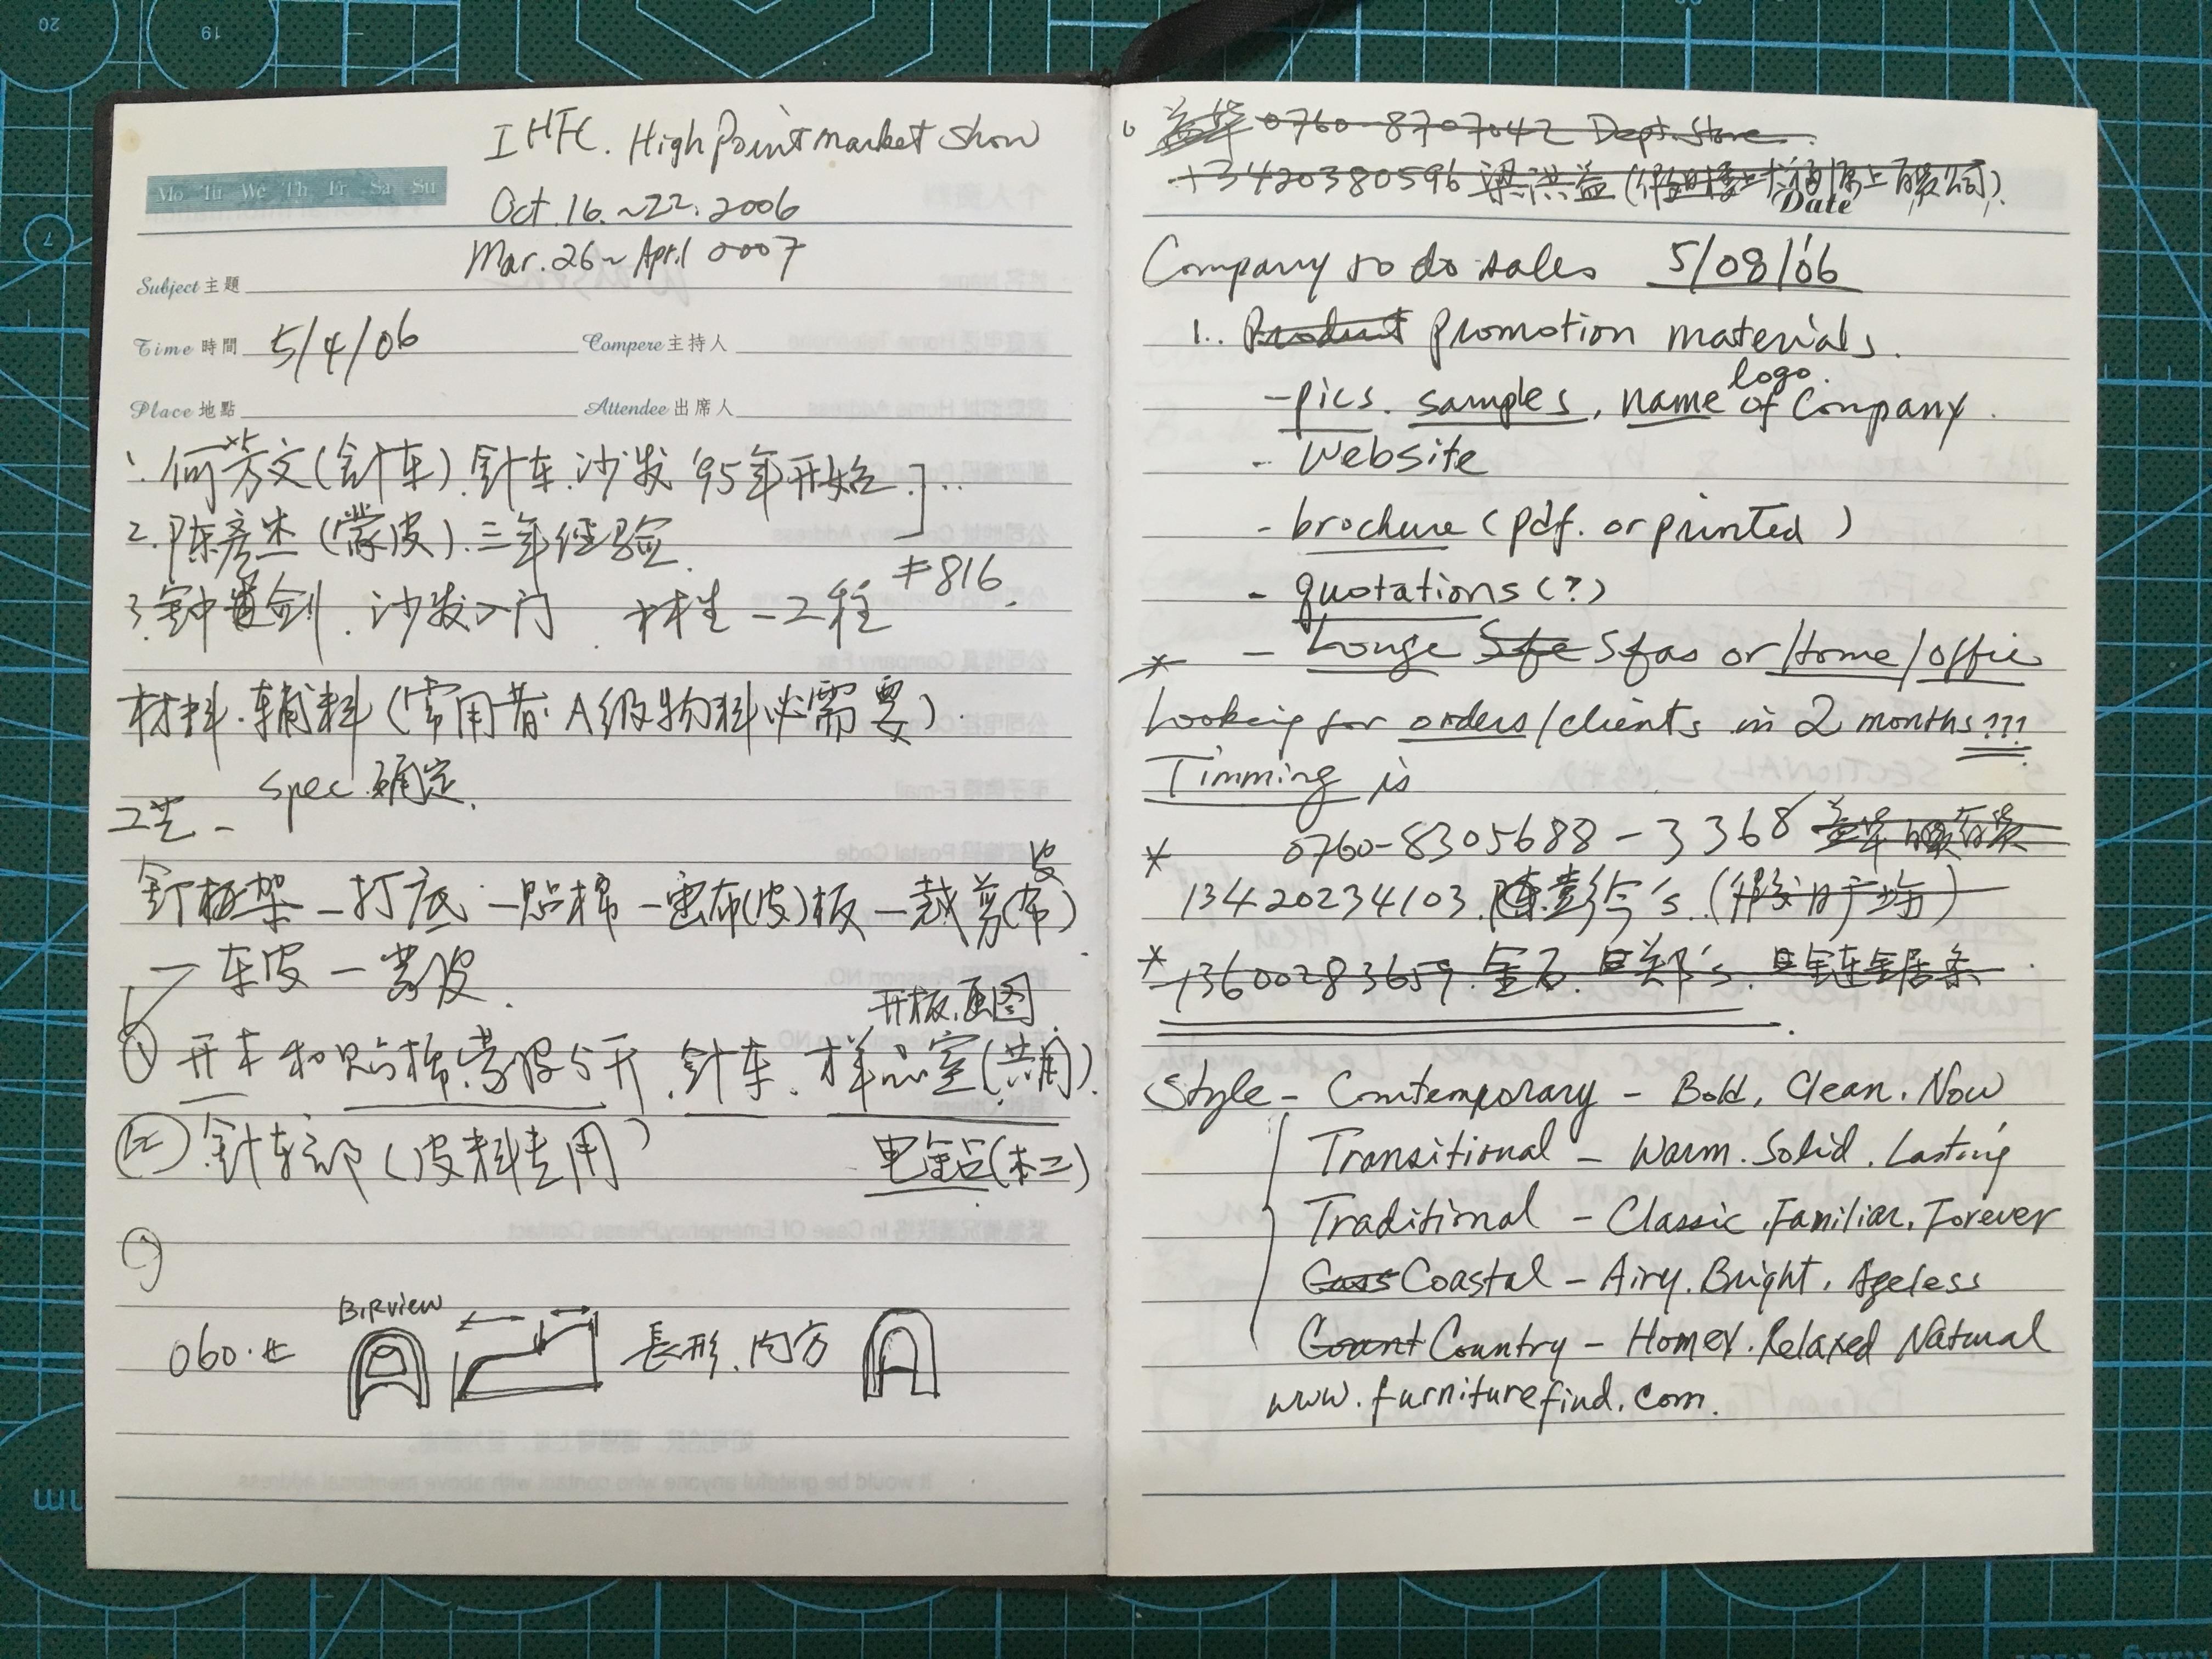 IHFC. High Point market show
Mo Tu We Th Fr Sa Su
Oct. 16. ~ 22. 2006
Mar. 26 ~ April 2007
Subject 主題
Time 時間 5/4/06 Compere 主持人
Place 地點 Attendee 出席人
1. 何芳文(針车).針车.沙发'95年开始.
2. 陈彦杰(蒙皮).三年经验.
#816.
3. 剑.沙发入门.
材料.辅料(常用者A级物料必需要).
spec.确定.
工艺 -
釘框架 - 打底 - 贴棉 - 布(皮)板 - 裁剪(布)
皮
- 车皮 - 蒙皮.
开板.画图
① 开 和贴棉.蒙皮分开.針车.样品室(共用).
針车部(皮料专用)
电钻(木工)
BiRview
060. 長形.内方
0760-8707042 Dept. Store.
13420380596 梁洪益
Date
Company to do sales 5/08/'06
1.. Product promotion materials.
logo.
- pics. samples, name of Company.
- Website
- brochure (pdf. or printed)
- quotations (?)
* - Longe Sfe Sfas or/Home/offic
Looking for orders/clients in 2 months???
Timming is
* 0760-8305688-3368
13420234103.陳彭
* 13600283659.金石.
Style - Contemporary - Bold, Clean. Now
Transitional - Warm. Solid. Lasting
Traditional - Classic. Familiar. Forever
Coas Coastal - Airy. Bright. Ageless
Count Country - Homey. Relaxed Natural
www.furniturefind.com.